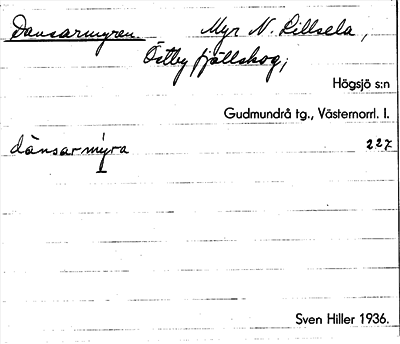 Dansarmyren. Myr N. Lillsela,
Östby fjällskog,
Högsjö s:n
Gudmundrå tg., Västernorrl. l.
dánsarmýra 227
Sven Hiller 1936.